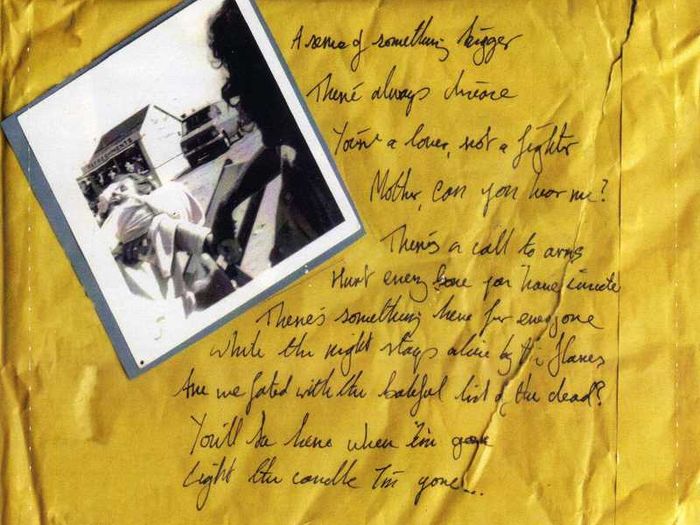 A sense of something bigger
There's always divorce
You're a lover, not a fighter
Mother, can you hear me?
There's a call to arms
Hurt every bone you have inside
There's something here for everyone
While the night stays alive by the flames
Are we fated with the list of the dead?
You'll be here when I'm gone
Light the candle I'm gone...